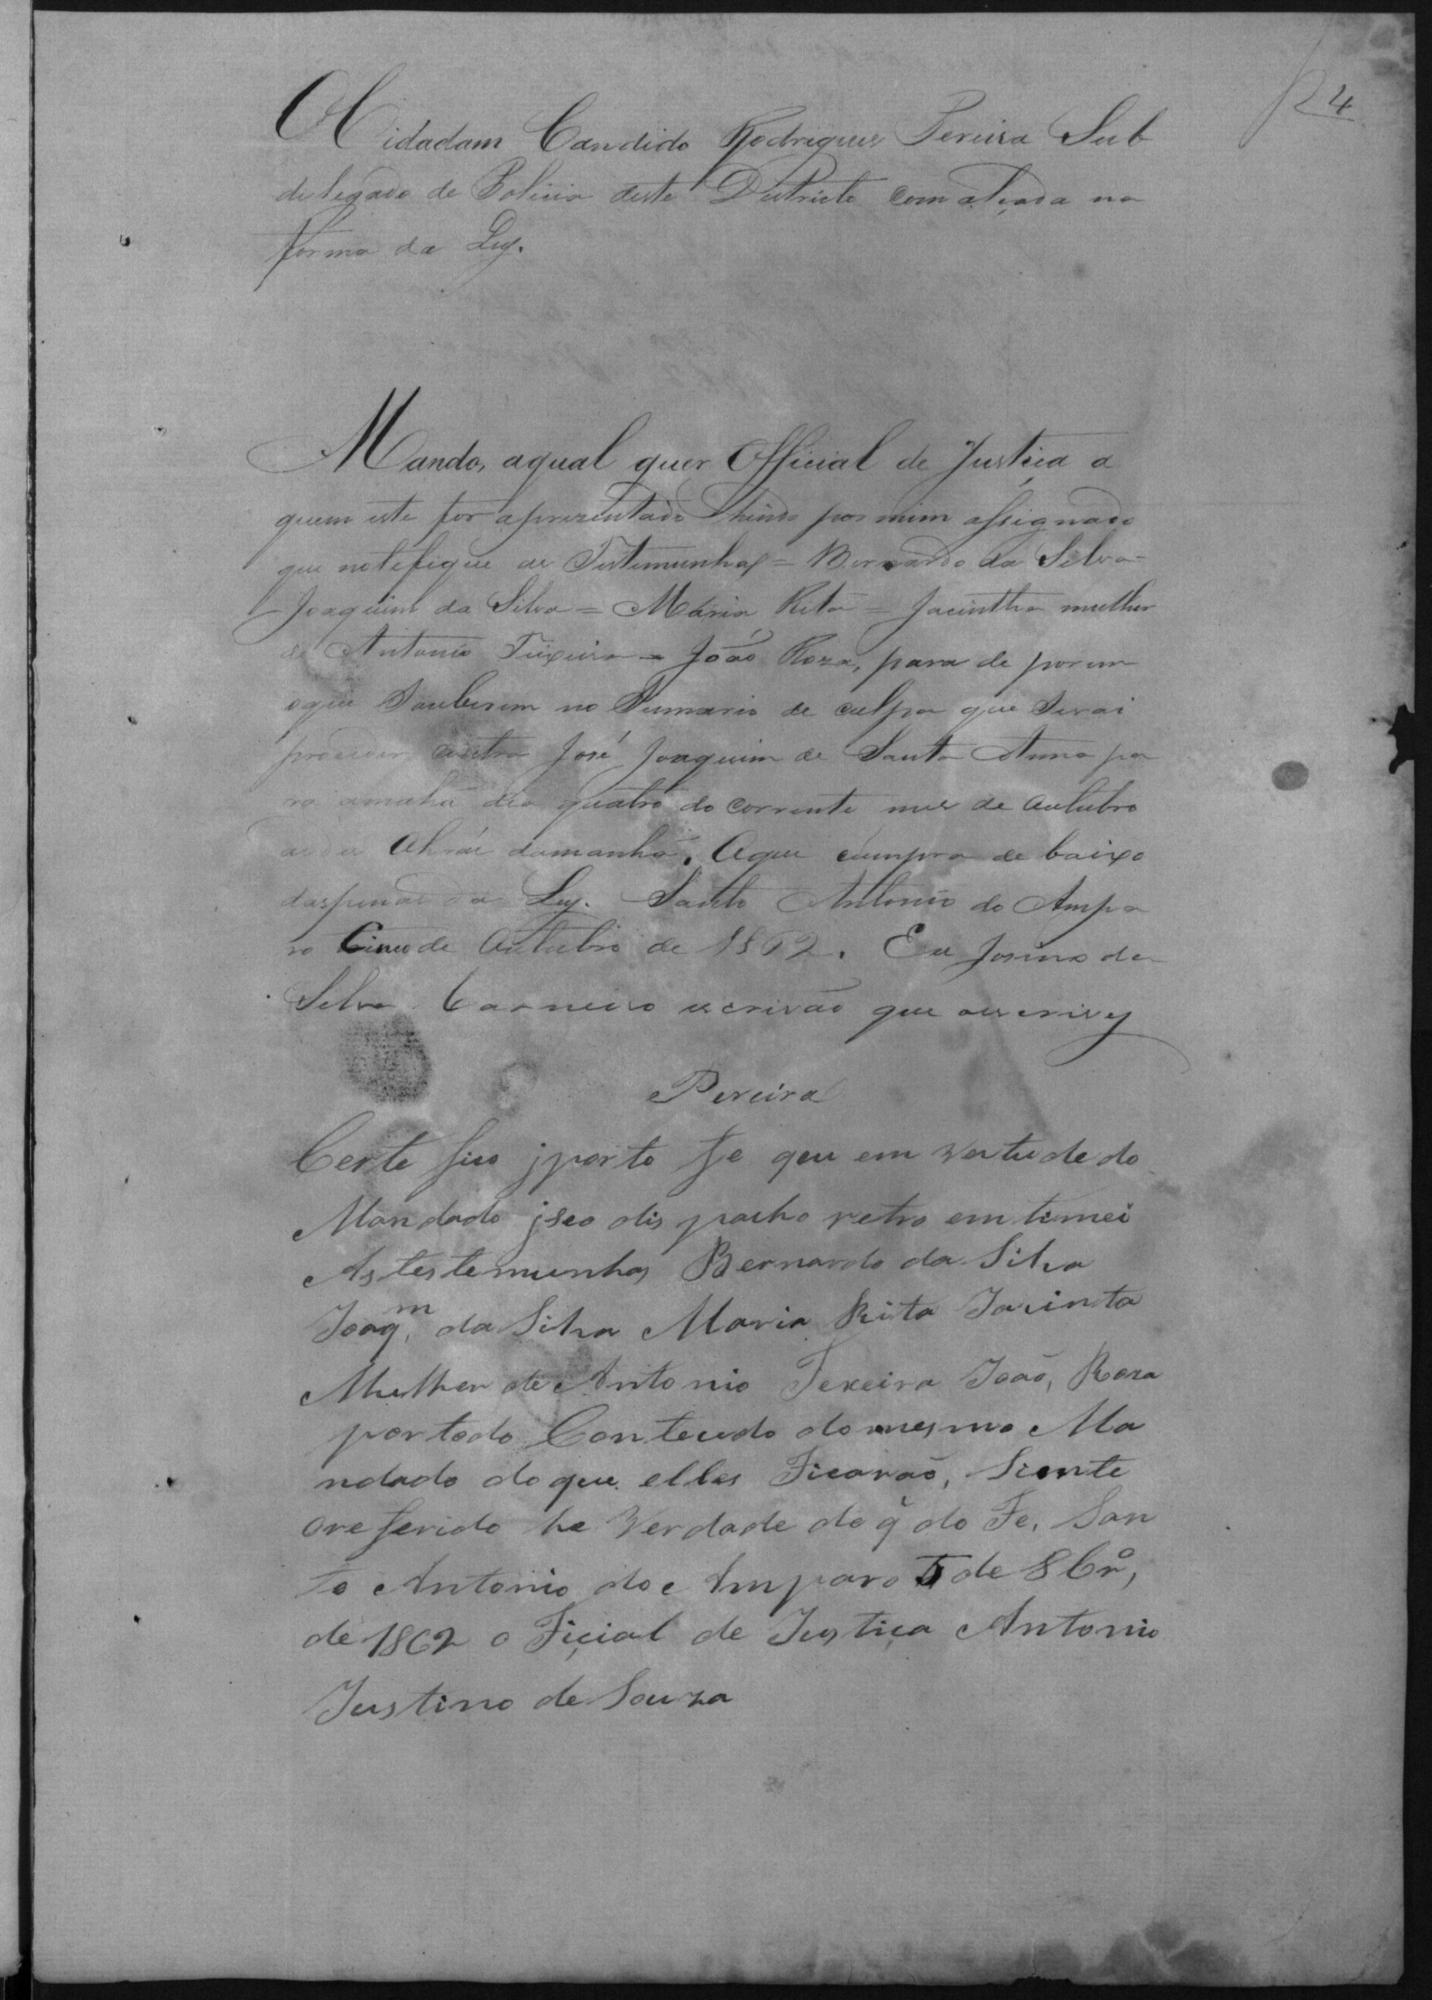 24
O Cidadam Candido Rodrigues Pereira Sub
delegado de Policia deste Destricto com alçada na
forma da Ley.
Mando, aqual quer Official de Justiça a
quem este for aprezentado hindo por mim assignado
que notefique as Testemunhas = Bernardo da Silva =
Joaquim da Silva = Maria Rita = Jacintha mulher
de Antonio Teixeira = João Roza, para de porem
oque Souberem no Sumario de culpa que Serai
proceder contra José Joaquim de Santa Anna pa
ra amanhã dia quatro do corrente mes de Outubro
as des Ahoras damanhã. Oque cumpra de baixo
daspenas da Ley. Santo Antonio do Ampa
ro Cinco de Outubro de 1862. Eu Josino da
Silva Carneiro escrivão que oescrivy
Pereira
Certe fico j porto fe que em vertude do
Mandado j seo dis pacho retro em timei
As testemunhas Bernardo da Silva
Joaqm. da Silva Maria Rita Jacinta
Mulher de Antonio Texeira João, Roza
por todo Contecudo do mesmo Ma
ndado do que elles Ficarão, Siente
Ore ferido he Verdade do q̃ do Fe, San
to Antonio do Amparo 5 de 8brº,
de 1862 o Ficial de Justiça Antonio
Justino de Souza